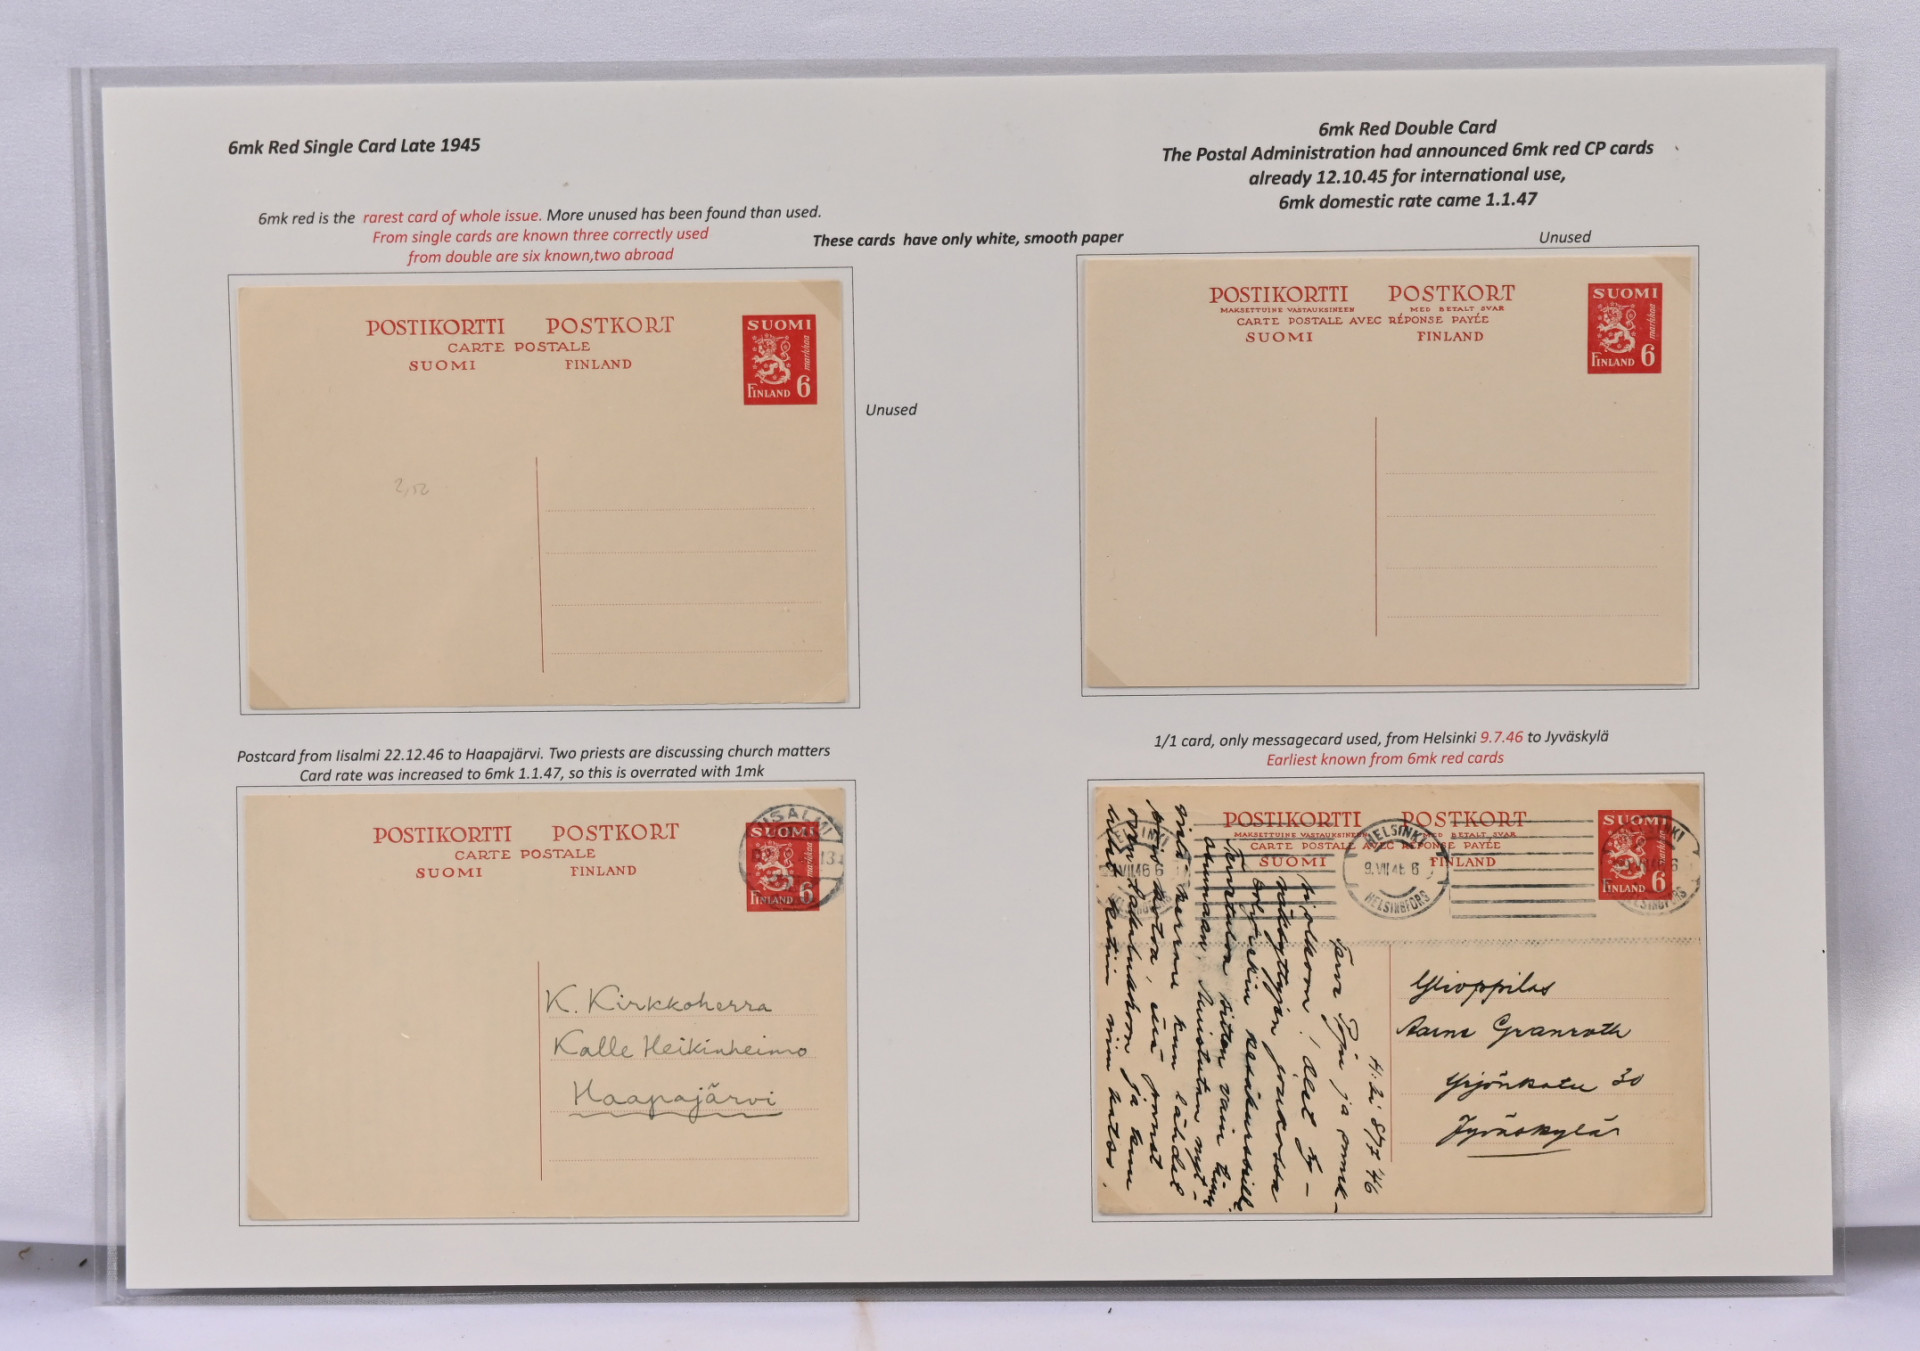 6mk Red Single Card Late 1945
6mk red is the rarest card of whole issue. More unused has been found than used.
From single cards are known three correctly used
from double are six known,two abroad
These cards have only white, smooth paper
6mk Red Double Card
The Postal Administration had announced 6mk red CP cards
already 12.10.45 for international use,
6mk domestic rate came 1.1.47
Unused
POSTIKORTTI POSTKORT
CARTE POSTALE
SUOMI FINLAND
SUOMI
markkaa
FINLAND 6
Unused
POSTIKORTTI POSTKORT
MAKSETTUINE VASTAUKSINEEN MED BETALT SVAR
CARTE POSTALE AVEC RÉPONSE PAYÉE
SUOMI FINLAND
SUOMI
markkaa
FINLAND 6
Postcard from Iisalmi 22.12.46 to Haapajärvi. Two priests are discussing church matters
Card rate was increased to 6mk 1.1.47, so this is overrated with 1mk
POSTIKORTTI POSTKORT
CARTE POSTALE
SUOMI FINLAND
IISALMI
SUOMI
markkaa
FINLAND 6
K. Kirkkoherra
Kalle Heikinheimo
Haapajärvi
1/1 card, only messagecard used, from Helsinki 9.7.46 to Jyväskylä
Earliest known from 6mk red cards
POSTIKORTTI POSTKORT
MAKSETTUINE VASTAUKSINEEN MED BETALT SVAR
CARTE POSTALE AVEC RÉPONSE PAYÉE
SUOMI FINLAND
HELSINKI
9.VII.46 6
HELSINGFORS
SUOMI
markkaa
FINLAND 6
Ylioppilas
Aarne Granroth
Yrjönkatu 30
Jyväskylä
H:ki 8/7 '46